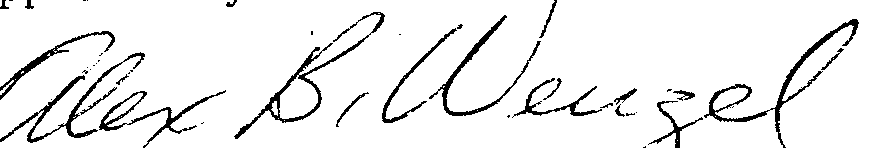 Alex B. Wenzel